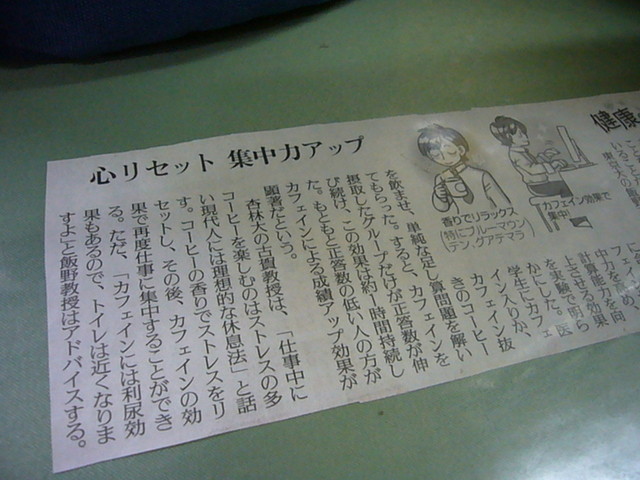 心リセット 集中力アップ
健康
香りでリラックス
(特にブルーマウン
テン、グアテマラ)
カフェイン効果で
集中!
中力を向
計算能力
上させる効果
を実験で明ら
かにした。医
学生にカフェ
イン入りか、
カフェイン抜
きのコーヒー
を飲ませ、単純な足し算問題を解い
てもらった。すると、カフェインを
摂取したグループだけが正答数が伸
び続け、この効果は約1時間持続し
た。もともと正答数の低い人の方が
カフェインによる成績アップ効果が
顕著だという。
杏林大の古賀教授は、「仕事中に
コーヒーを楽しむのはストレスの多
い現代人には理想的な休息法」と話
す。コーヒーの香りでストレスをリ
セットし、その後、カフェインの効
果で再度仕事に集中することができ
る。ただ、「カフェインには利尿効
果もあるので、トイレは近くなりま
すよ」と飯野教授はアドバイスする。